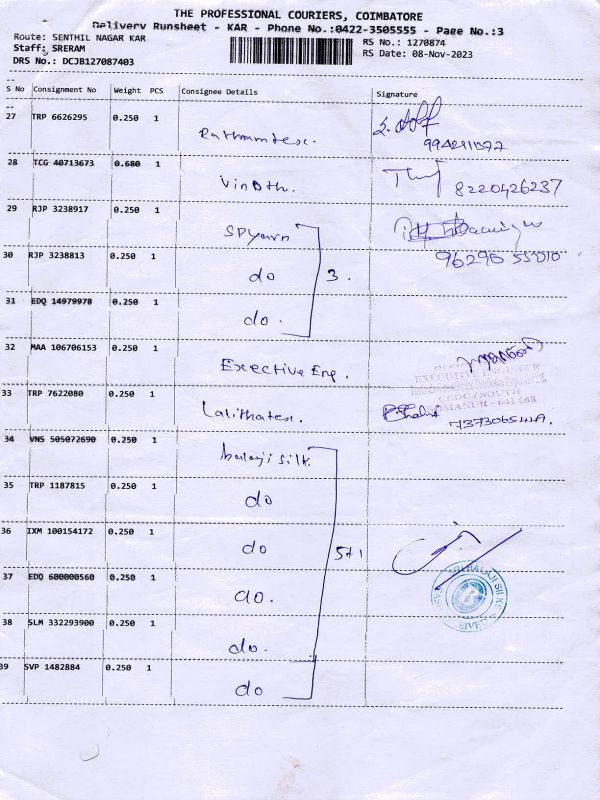 THE PROFESSIONAL COURIERS, COIMBATORE
Delivery Runsheet - KAR - Phone No.:0422-3505555 - Page No.:3
Route: SENTHIL NAGAR KAR
RS No.: 1270874
Staff: SRERAM
RS Date: 08-Nov-2023
DRS No.: DCJB127087403
S No Consignment No Weight PCS Consignee Details Signature
27 TRP 6626295 0.250 1
28 TCG 40713673 0.680 1 Vinoth.
8220426237
29 RJP 3238917 0.250 1 SPYarn
30 RJP 3238813 0.250 1 do 3.
96296 55010
31 EDQ 14979978 0.250 1 do.
32 MAA 106706153 0.250 1 Exective Eng.
EXECUTIVE ENGINEER
CEDC/SOUTH
33 TRP 7622080 0.250 1 Lalithatex.
34 VNS 505072690 0.250 1 balaji silk.
35 TRP 1187815 0.250 1 do
36 IXM 100154172 0.250 1 do 5+1
37 EDQ 600000560 0.250 1 do.
38 SLM 332293900 0.250 1 do.
39 SVP 1482884 0.250 1 do